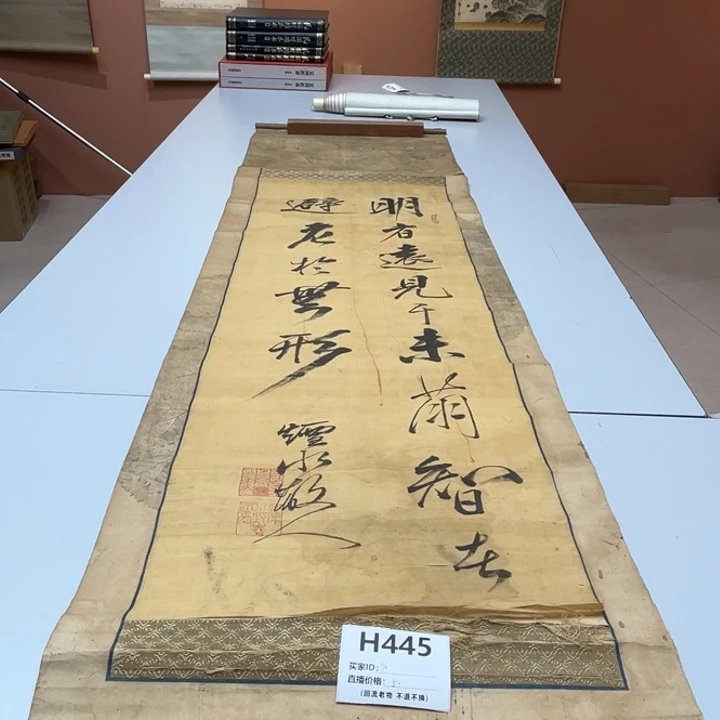 明者遠見于未萠智者
避危於無形
煙水散人
H445
买家ID:
直播价格:
(回流老物 不退不换)